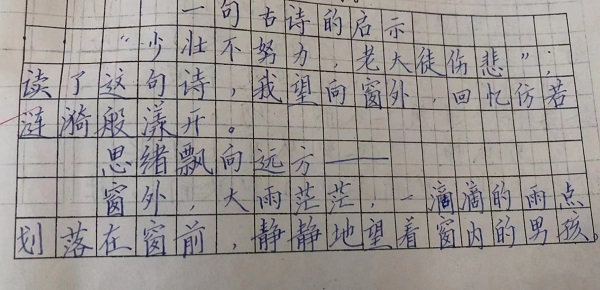 一句古诗的启示
“少壮不努力，老大徒伤悲”；
读了这句诗，我望向窗外，回忆仿若
涟漪般漾开。
思绪飘向远方——
窗外，大雨茫茫，一滴滴的雨点
划落在窗前，静静地望着窗内的男孩。